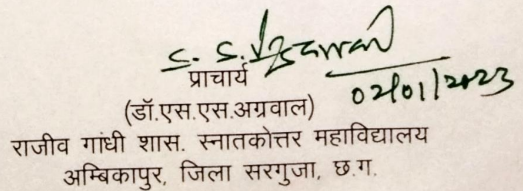 S. S. Agrawal
प्राचार्य
02/01/2023
(डॉ.एस.एस.अग्रवाल)
राजीव गांधी शास. स्नातकोत्तर महाविद्यालय
अम्बिकापुर, जिला सरगुजा, छ.ग.